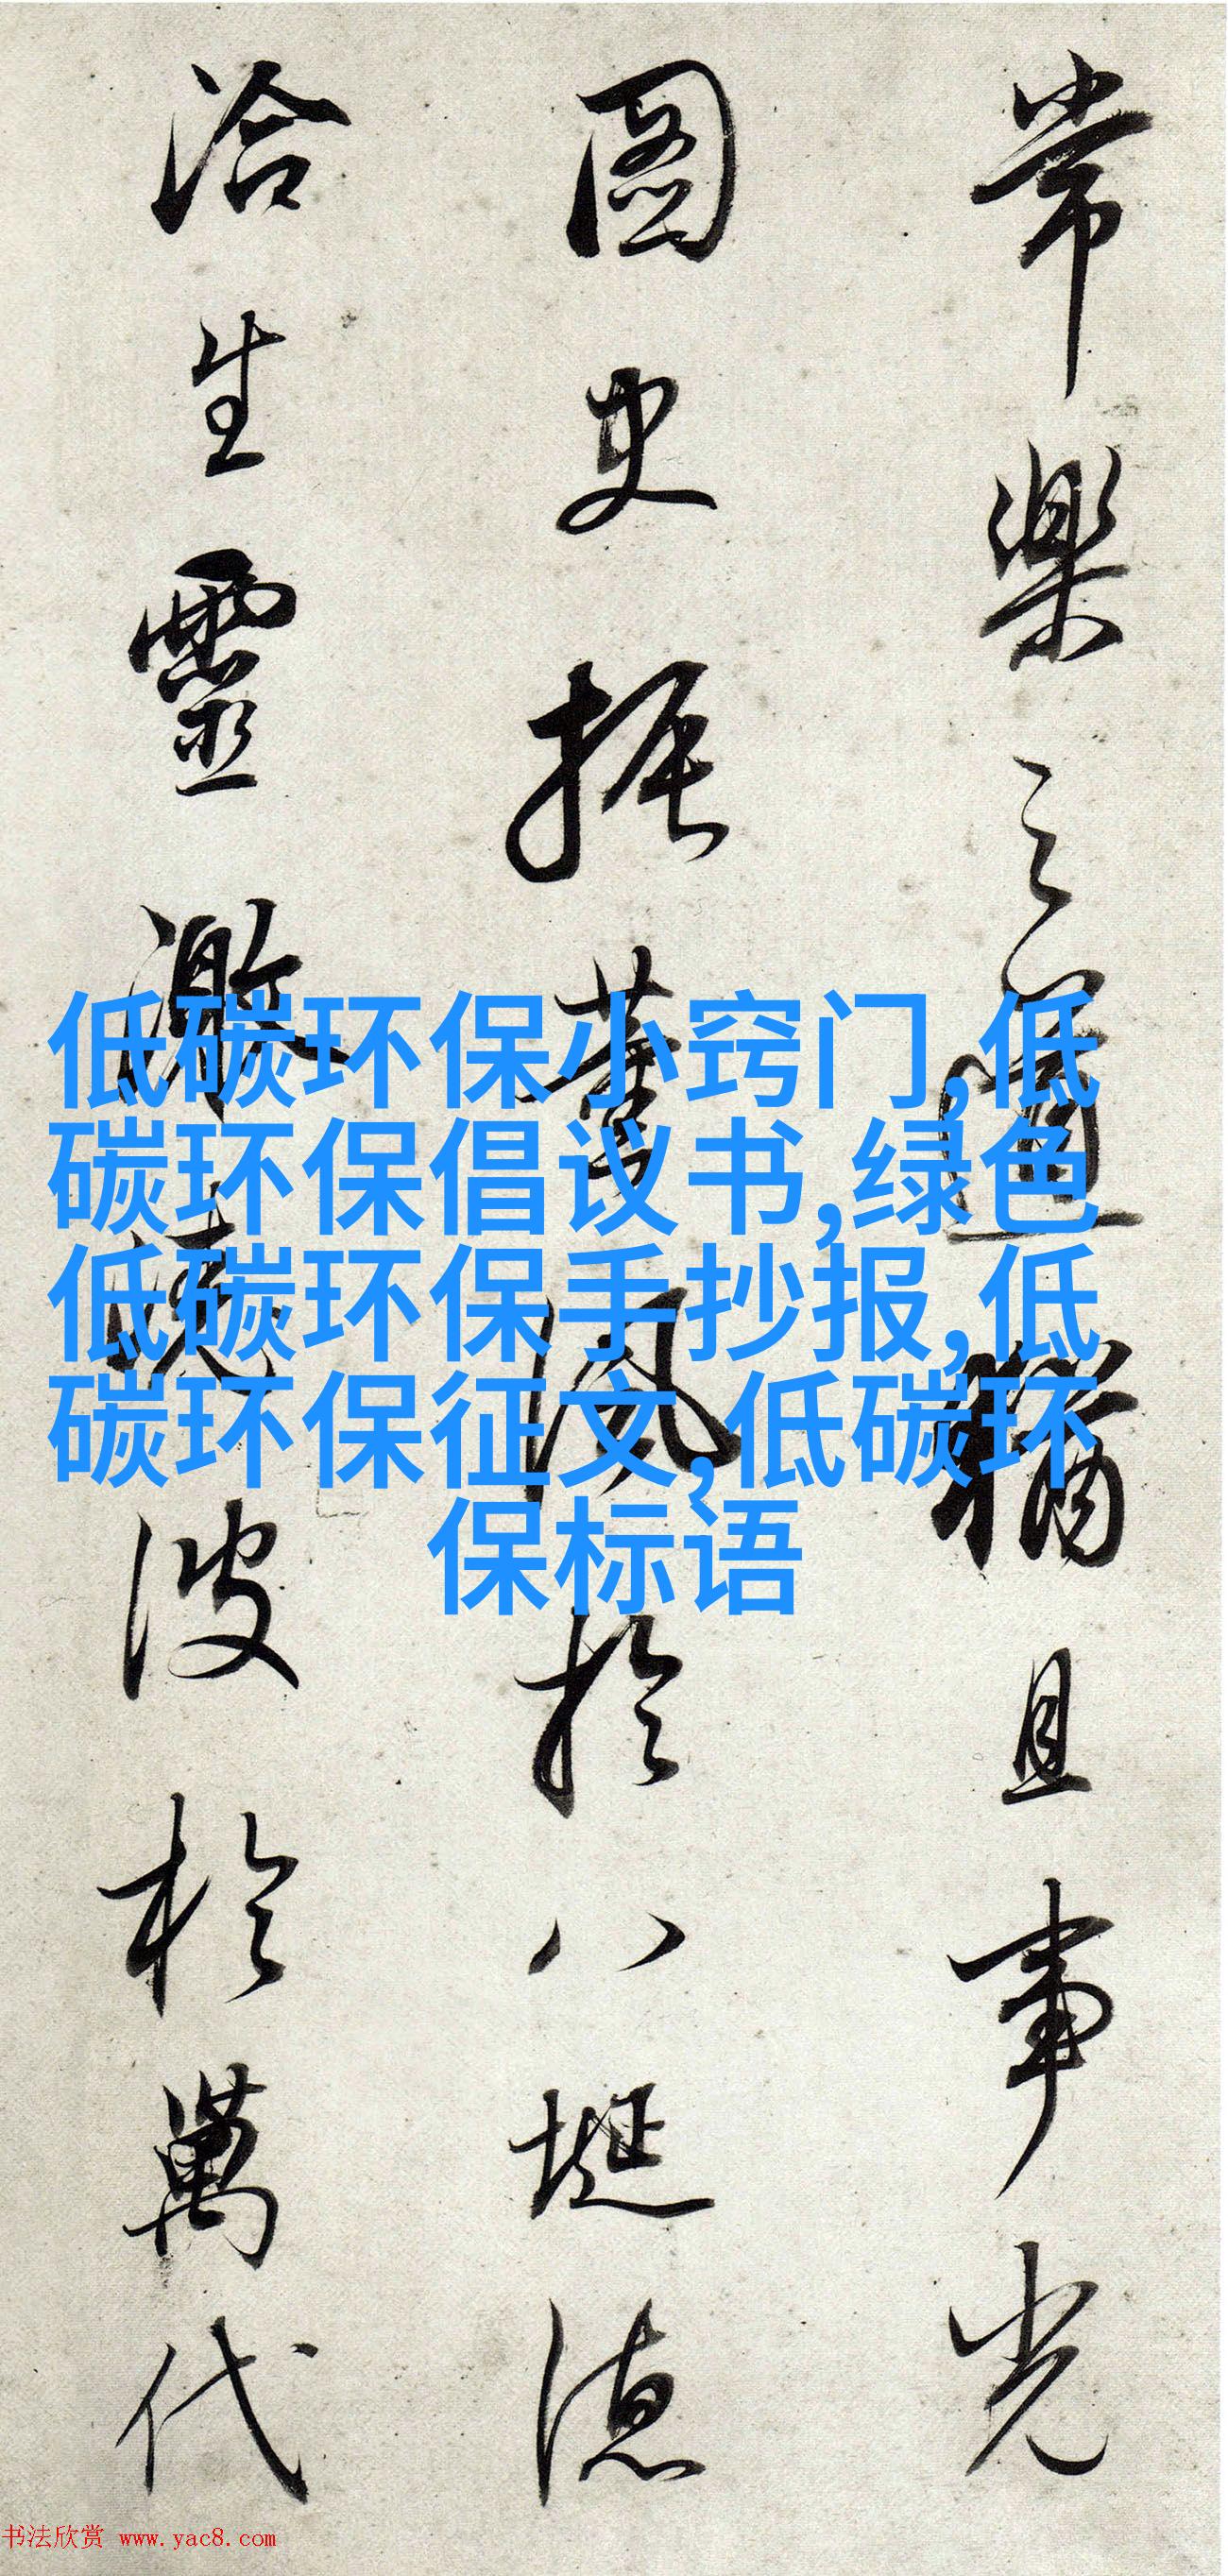 常樂之道猶且事光
圖史振薰風於八埏德
洽生靈激堯波於萬代
低碳环保小窍门,低
碳环保倡议书,绿色
低碳环保手抄报,低
碳环保征文,低碳环
保标语
书法欣赏 www.yac8.com